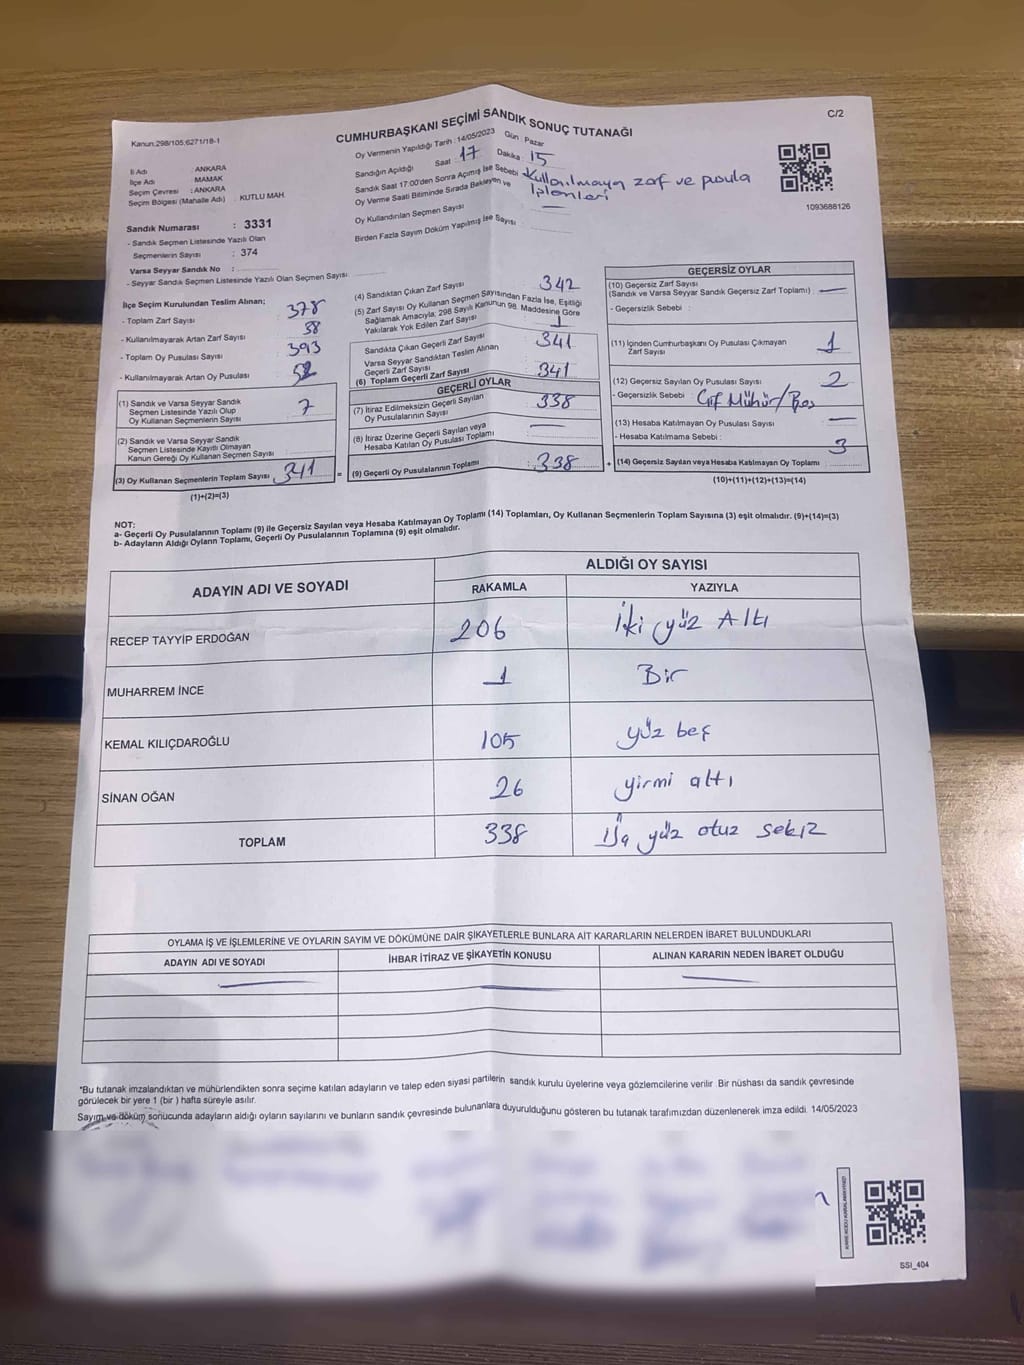 C/2
Kanun:298/105,6271/18-1
CUMHURBAŞKANI SEÇİMİ SANDIK SONUÇ TUTANAĞI
Oy Vermenin Yapıldığı Tarih : 14/05/2023 Gün : Pazar
İl Adı : ANKARA
İlçe Adı : MAMAK
Seçim Çevresi : ANKARA
Seçim Bölgesi (Mahalle Adı) : KUTLU MAH.
Sandığın Açıldığı Saat : 17 Dakika : 15
Sandık Saat 17:00'den Sonra Açılmış İse Sebebi : Kullanılmayan zarf ve pusula
işlemleri
Oy Verme Saati Bitiminde Sırada Bekleyen ve
Oy Kullandırılan Seçmen Sayısı
Birden Fazla Sayım Döküm Yapılmış İse Sayısı
1093688126
Sandık Numarası : 3331
- Sandık Seçmen Listesinde Yazılı Olan
Seçmenlerin Sayısı : 374
Varsa Seyyar Sandık No :
- Seyyar Sandık Seçmen Listesinde Yazılı Olan Seçmen Sayısı
İlçe Seçim Kurulundan Teslim Alınan;
- Toplam Zarf Sayısı 378
- Kullanılmayarak Artan Zarf Sayısı 38
- Toplam Oy Pusulası Sayısı 393
- Kullanılmayarak Artan Oy Pusulası 52
(1) Sandık ve Varsa Seyyar Sandık
Seçmen Listesinde Yazılı Olup
Oy Kullanan Seçmenlerin Sayısı 7
(2) Sandık ve Varsa Seyyar Sandık
Seçmen Listesinde Kayıtlı Olmayan
Kanun Gereği Oy Kullanan Seçmen Sayısı
(3) Oy Kullanan Seçmenlerin Toplam Sayısı 341
(1)+(2)=(3)
(4) Sandıktan Çıkan Zarf Sayısı 342
(5) Zarf Sayısı Oy Kullanan Seçmen Sayısından Fazla İse, Eşitliği
Sağlamak Amacıyla, 298 Sayılı Kanunun 98. Maddesine Göre
Yakılarak Yok Edilen Zarf Sayısı 1
Sandıkta Çıkan Geçerli Zarf Sayısı 341
Varsa Seyyar Sandıktan Teslim Alınan
Geçerli Zarf Sayısı
(6) Toplam Geçerli Zarf Sayısı 341
GEÇERLİ OYLAR
(7) İtiraz Edilmeksizin Geçerli Sayılan
Oy Pusulalarının Sayısı 338
(8) İtiraz Üzerine Geçerli Sayılan veya
Hesaba Katılan Oy Pusulası Toplamı
= (9) Geçerli Oy Pusulalarının Toplamı : 338
GEÇERSİZ OYLAR
(10) Geçersiz Zarf Sayısı
(Sandık ve Varsa Seyyar Sandık Geçersiz Zarf Toplamı) :
- Geçersizlik Sebebi :
(11) İçinden Cumhurbaşkanı Oy Pusulası Çıkmayan
Zarf Sayısı 1
(12) Geçersiz Sayılan Oy Pusulası Sayısı 2
- Geçersizlik Sebebi : Çif Mühür/Boş
(13) Hesaba Katılmayan Oy Pusulası Sayısı
- Hesaba Katılmama Sebebi :
+ (14) Geçersiz Sayılan veya Hesaba Katılmayan Oy Toplamı 3
(10)+(11)+(12)+(13)=(14)
NOT:
a- Geçerli Oy Pusulalarının Toplamı (9) ile Geçersiz Sayılan veya Hesaba Katılmayan Oy Toplamı (14) Toplamları, Oy Kullanan Seçmenlerin Toplam Sayısına (3) eşit olmalıdır. (9)+(14)=(3)
b- Adayların Aldığı Oyların Toplamı, Geçerli Oy Pusulalarının Toplamına (9) eşit olmalıdır.
ADAYIN ADI VE SOYADI ALDIĞI OY SAYISI
RAKAMLA YAZIYLA
RECEP TAYYİP ERDOĞAN 206 İki yüz Altı
MUHARREM İNCE 1 Bir
KEMAL KILIÇDAROĞLU 105 yüz beş
SİNAN OĞAN 26 yirmi altı
TOPLAM 338 yüz otuz sekiz
OYLAMA İŞ VE İŞLEMLERİNE VE OYLARIN SAYIM VE DÖKÜMÜNE DAİR ŞİKAYETLERLE BUNLARA AİT KARARLARIN NELERDEN İBARET BULUNDUKLARI
ADAYIN ADI VE SOYADI İHBAR İTİRAZ VE ŞİKAYETİN KONUSU ALINAN KARARIN NEDEN İBARET OLDUĞU
*Bu tutanak imzalandıktan ve mühürlendikten sonra seçime katılan adayların ve talep eden siyasi partilerin sandık kurulu üyelerine veya gözlemcilerine verilir. Bir nüshası da sandık çevresinde
görülecek bir yere 1 (bir ) hafta süreyle asılır.
Sayım ve döküm sonucunda adayların aldığı oyların sayılarını ve bunların sandık çevresinde bulunanlara duyurulduğunu gösteren bu tutanak tarafımızdan düzenlenerek imza edildi. 14/05/2023
SSI_404